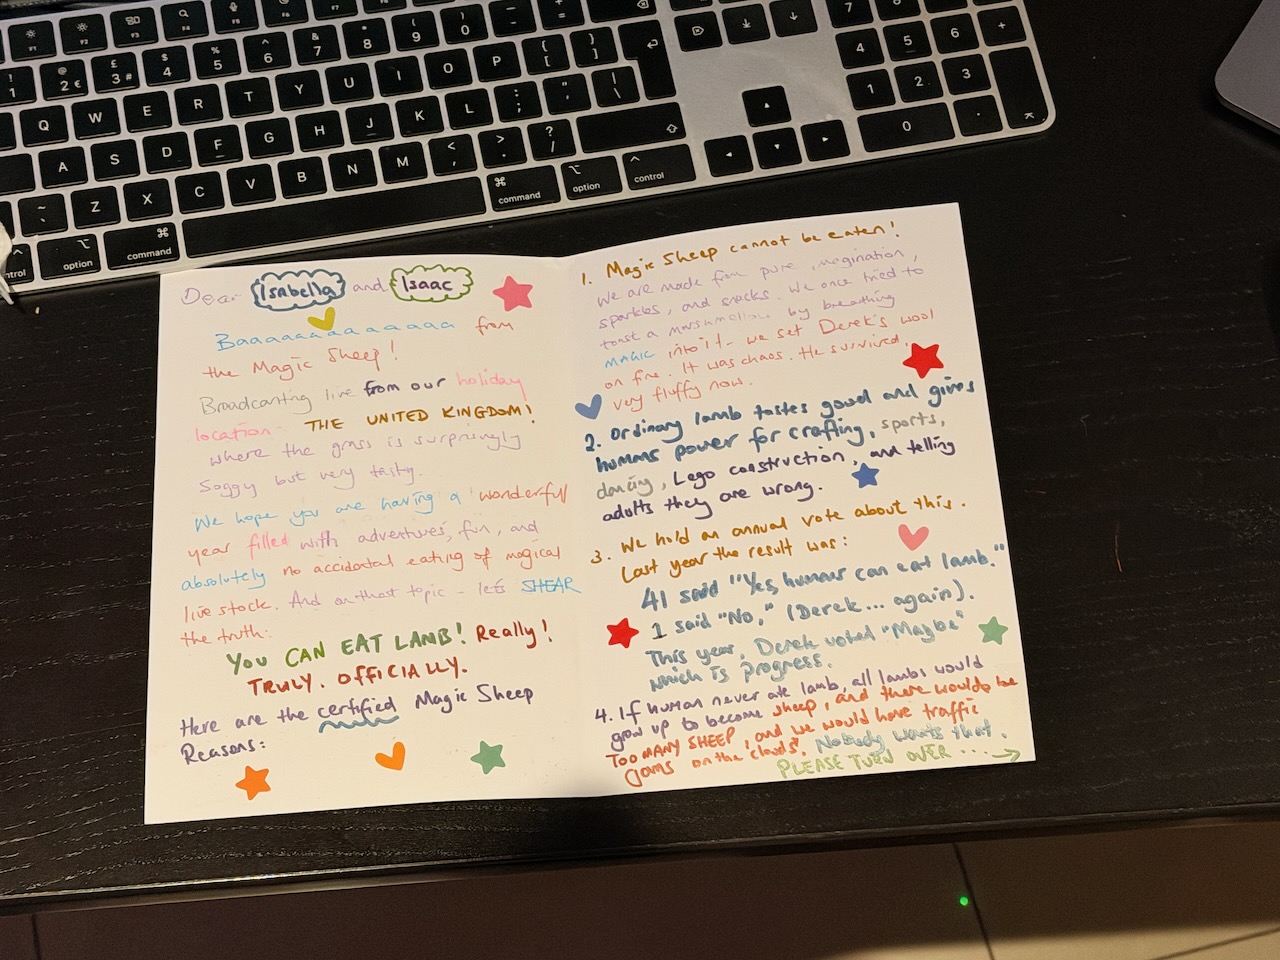 F1
F2
F3
F4
F5
F6
! 1
@ 2 €
£ 3 #
$ 4
% 5
^ 6
& 7
* 8
( 9
) 0
_ -
+ =
7
8
9
Q W E R T Y U I O P { [ } ]
4 5 6 +
A S D F G H J K L : ; " ' | \
1 2 3
~ ` Z X C V B N M < , > . ? /
0 .
control option command command option control
Dear Isabella and Isaac
Baaaaaaaaaaaaa from
the Magic Sheep!
Broadcasting live from our holiday
location: THE UNITED KINGDOM!
where the grass is surprisingly
soggy but very tasty.
We hope you are having a wonderful
year filled with adventures, fun, and
absolutely no accidental eating of magical
live stock. And on that topic - let's SHEAR
the truth:
YOU CAN EAT LAMB! Really!
TRULY. OFFICIALLY.
Here are the certified Magic Sheep
Reasons:
1. Magic Sheep cannot be eaten!
We are made from pure imagination,
sparkles, and snacks. We once tried to
toast a marshmallow by breathing
MAGIC into it - we set Derek's wool
on fire. It was chaos. He survived.
Very fluffy now.
2. Ordinary lamb tastes good and gives
humans power for crafting, sports,
dancing, Lego construction, and telling
adults they are wrong.
3. We hold an annual vote about this.
Last year the result was:
41 said "Yes, humans can eat lamb."
1 said "No," (Derek... again).
This year, Derek voted "Maybe"
which is progress.
4. If human never ate lamb, all lambs would
grow up to become sheep, and there would be
TOO MANY SHEEP, and we would have traffic
jams on the clouds. Nobody wants that.
PLEASE TURN OVER ... →